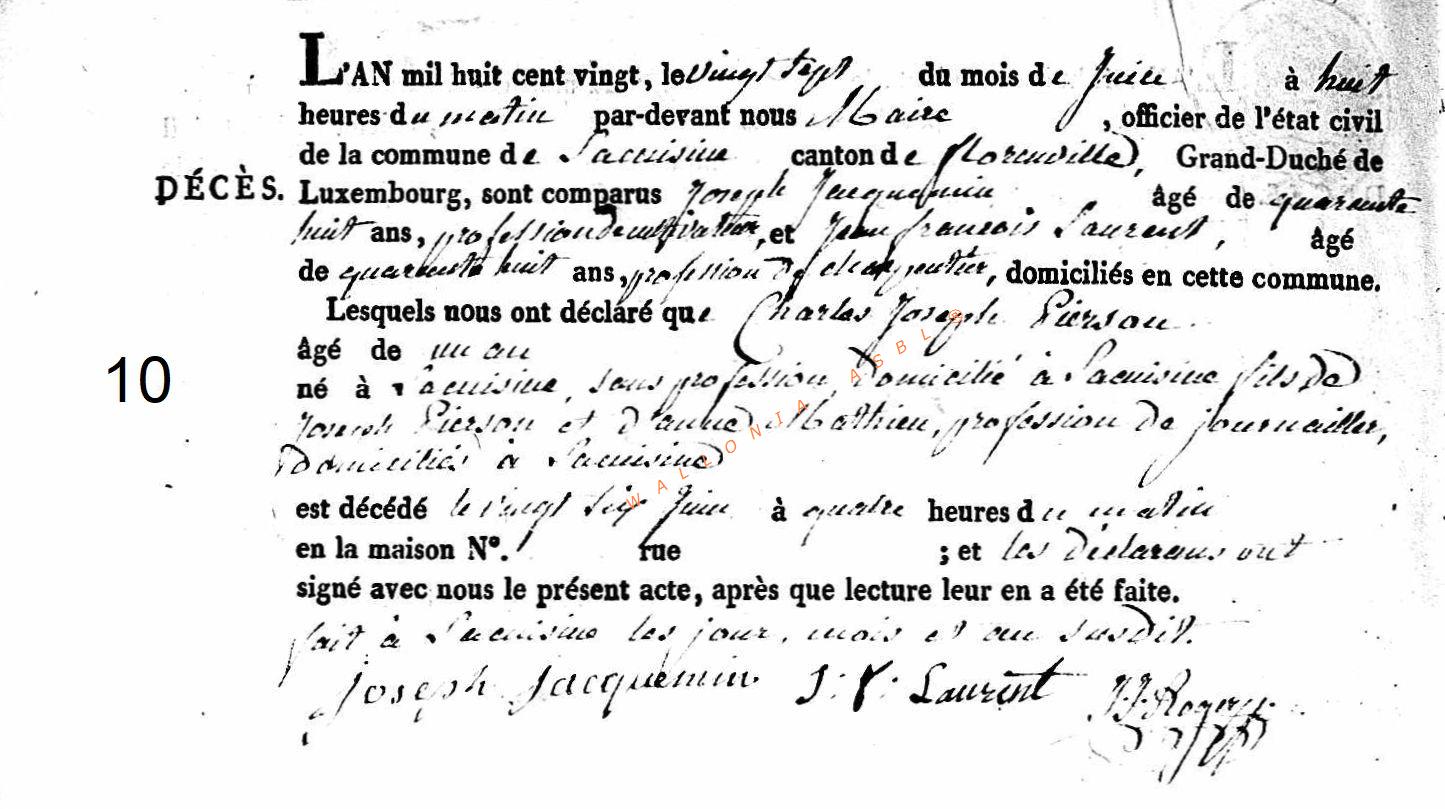 L'AN mil huit cent vingt, le vingt sept du mois de Juin à huit
heures du matin par-devant nous Maire , officier de l'état civil
de la commune de Lacuisine canton de florenville, Grand-Duché de
DÉCÈS. Luxembourg, sont comparus Joseph Jacquemin âgé de quarante
huit ans, profession de cultivateur, et Jean françois Laurent, âgé
de quarante huit ans, profession de charpentier, domiciliés en cette commune.
Lesquels nous ont déclaré que Charles Joseph Pierson
âgé de un an
10
né à Lacuisine, sans profession, domicilié à Lacuisine fils de
Joseph Pierson et d'anne Mathieu, profession de journailler,
domiciliés à Lacuisine
WALLONIA ASBL ©
est décédé le vingt six Juin à quatre heures du matin
en la maison N°. rue ; et les déclarans ont
signé avec nous le présent acte, après que lecture leur en a été faite.
fait à Lacuisine les jour, mois et an susdit.
Joseph Jacquemin J: F: Laurent